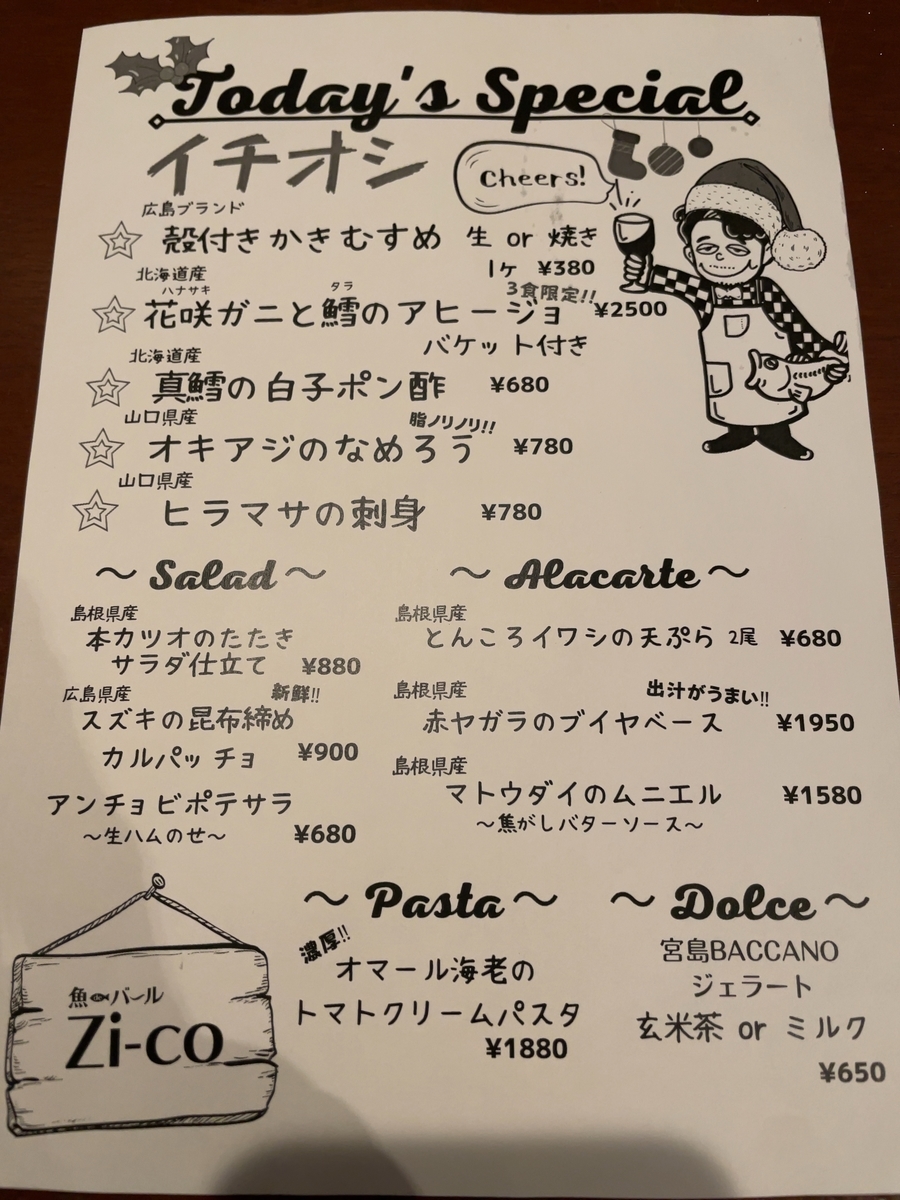 Today's Special
イチオシ
Cheers!
広島ブランド
殻付きかきむすめ 生 or 焼き
1ヶ ¥380
北海道産
3食限定!!
ハナサキ タラ
花咲ガニと鱈のアヒージョ ¥2500
バケット付き
北海道産
真鱈の白子ポン酢 ¥680
山口県産
脂ノリノリ!!
オキアジのなめろう ¥780
山口県産
ヒラマサの刺身 ¥780
～ Salad ～
島根県産
本カツオのたたき
サラダ仕立て ¥880
広島県産 新鮮!!
スズキの昆布締め
カルパッチョ ¥900
アンチョビポテサラ
～生ハムのせ～ ¥680
～ Alacarte ～
島根県産
とんころイワシの天ぷら 2尾 ¥680
島根県産 出汁がうまい!!
赤ヤガラのブイヤベース ¥1950
島根県産
マトウダイのムニエル ¥1580
～焦がしバターソース～
～ Pasta ～
濃厚!!
オマール海老の
トマトクリームパスタ
¥1880
～ Dolce ～
宮島BACCANO
ジェラート
玄米茶 or ミルク
¥650
魚バル
Zi-co